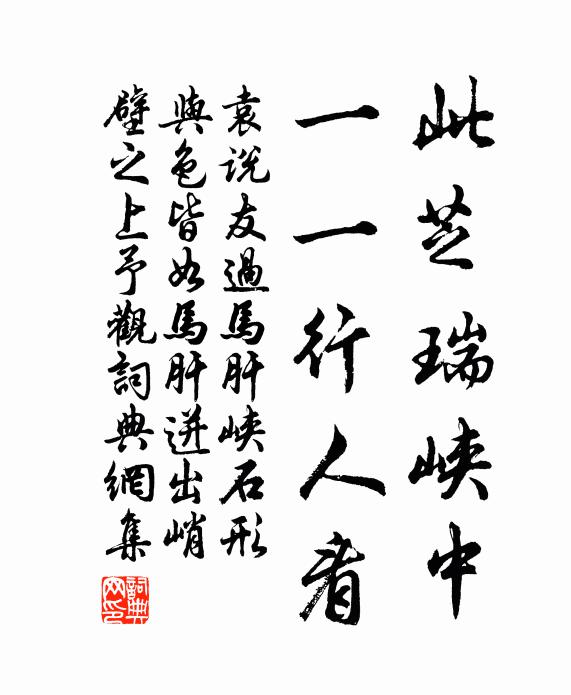 此芝瑞峽中
一一行人看
袁說友過馬肝峽石形
與色皆如馬肝迸出峭
壁之上予觀詞典網集
詞典
网印